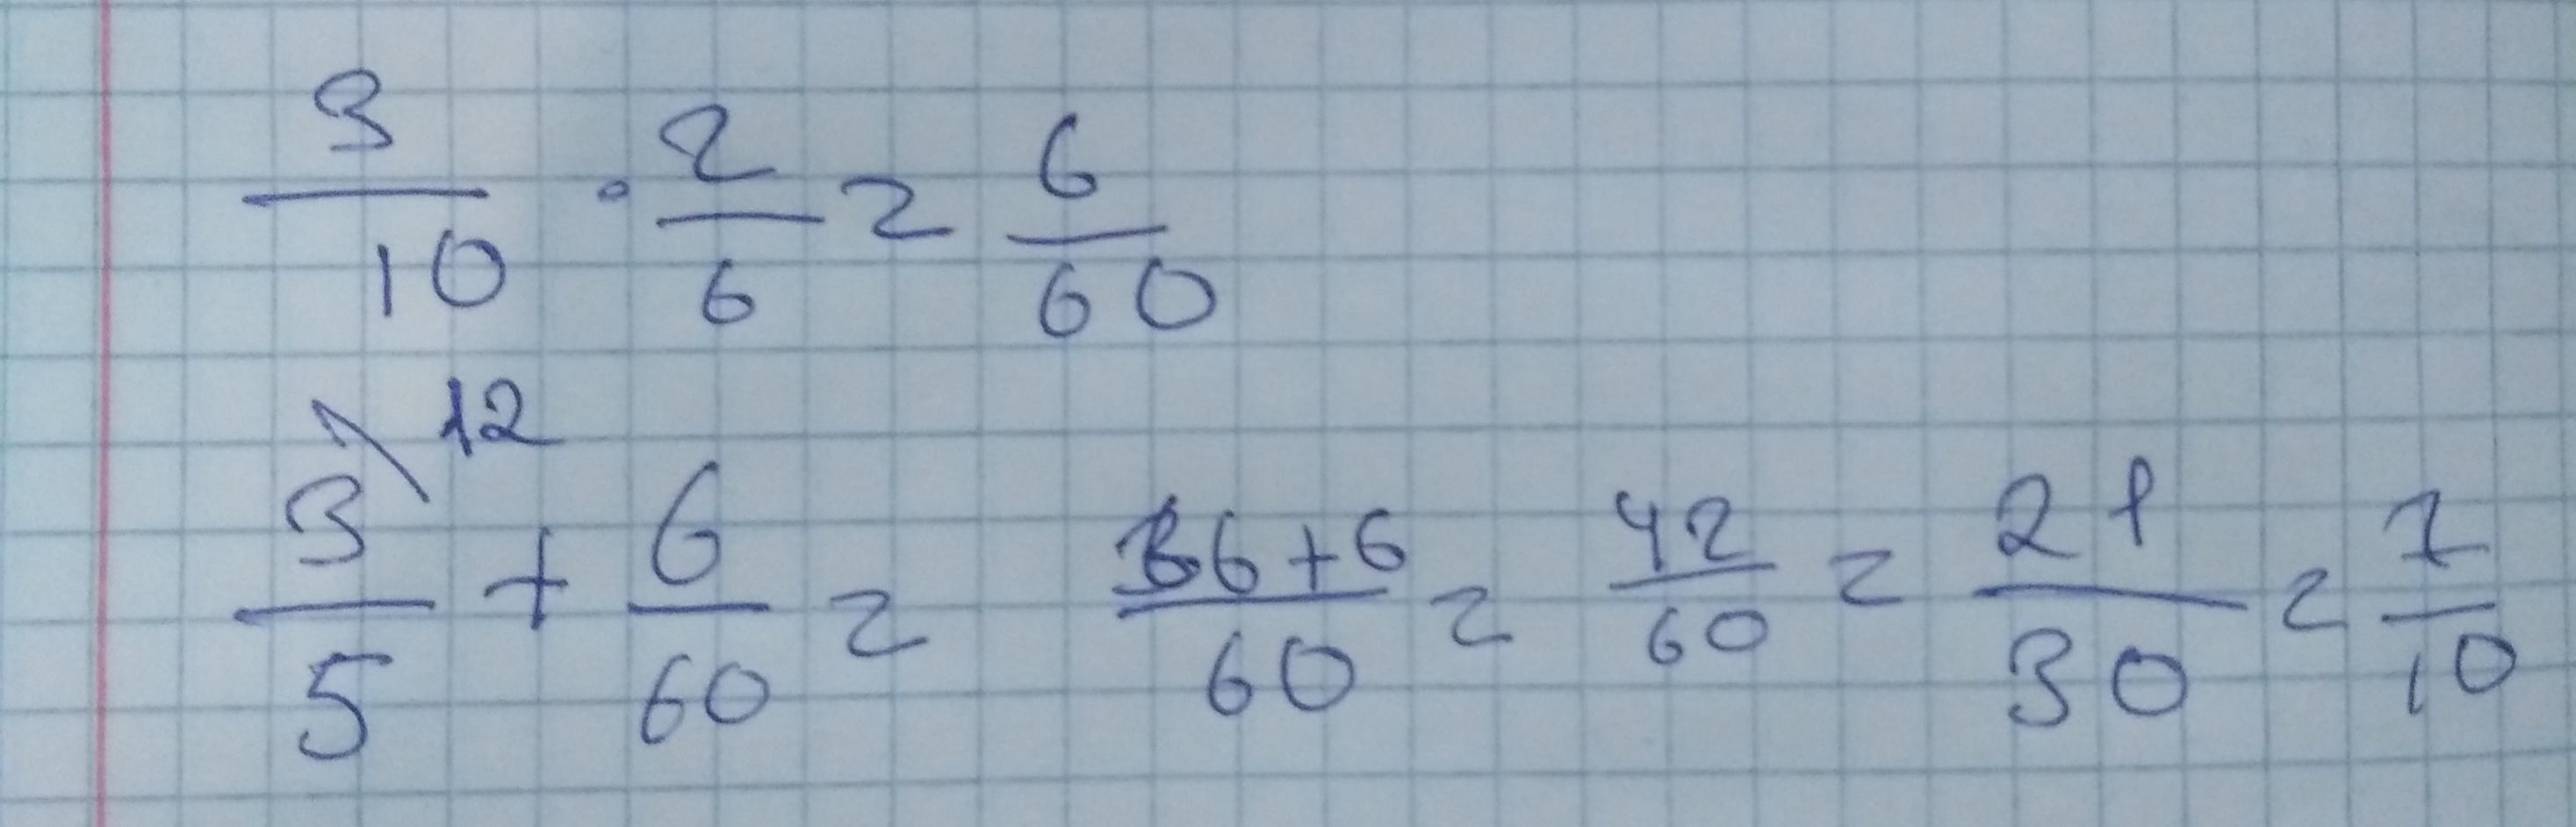 3/10 · 2/6 = 6/60
3\12/5 + 6/60 = 36+6/60 = 42/60 = 21/30 = 7/10